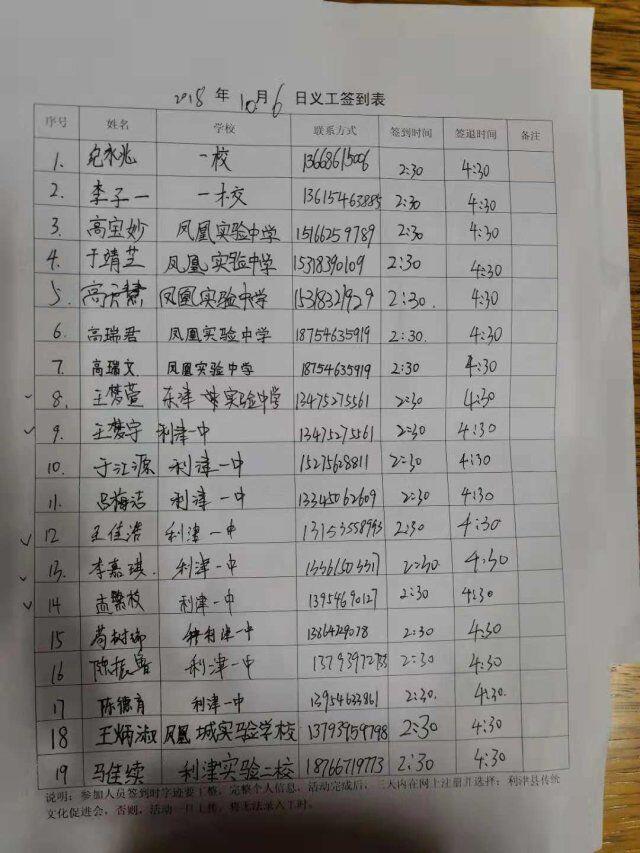 2018 年 10 月 6 日义工签到表
序号 姓名 学校 联系方式 签到时间 签退时间 备注
1. 纪永兆 一校 13668615006 2:30 4:30
2. 李子一 一校 13615463885 2:30 4:30
3. 高宝妙 凤凰实验中学 15166259789 2:30 4:30
4. 于靖芝 凤凰实验中学 15318390109 2:30 4:30
5. 高云慧 凤凰实验中学 15318321929 2:30. 4:30
6. 高瑞君 凤凰实验中学 18754635919 2:30. 4:30
7. 高瑞文 凤凰实验中学 18754635919 2:30 4:30
8. 王梦萱 东津 实验中学 13475275561 2:30 4:30
9. 王梦宇 利津一中 13475275561 2:30 4:30
10. 于江源 利津一中 15275628811 2:30 4:30
11. 吕梅洁 利津一中 13345062609 2:30 4:30
12 王佳浩 利津一中 13153558993 2:30 4:30
13. 李嘉琪. 利津一中 13361503317 2:30 4:30
14 利津一中 13954690127 2:30 4:30
15 利津一中 13864729078 2:30 4:30
16 陈振鲁 利津一中 2:30 4:30
17 陈德育 利津一中 13954623861 2:30. 4:30.
18 王炳淑 凤凰城实验学校 13793959798 2:30 4:30
19 马佳续 利津实验二校 18766719773 2:30 4:30
说明：参加人员签到时字迹要工整，完整个人信息，活动完成后，三天内在网上注册并选择：利津县传统
文化促进会，否则，活动一旦上传，将无法录入工时。